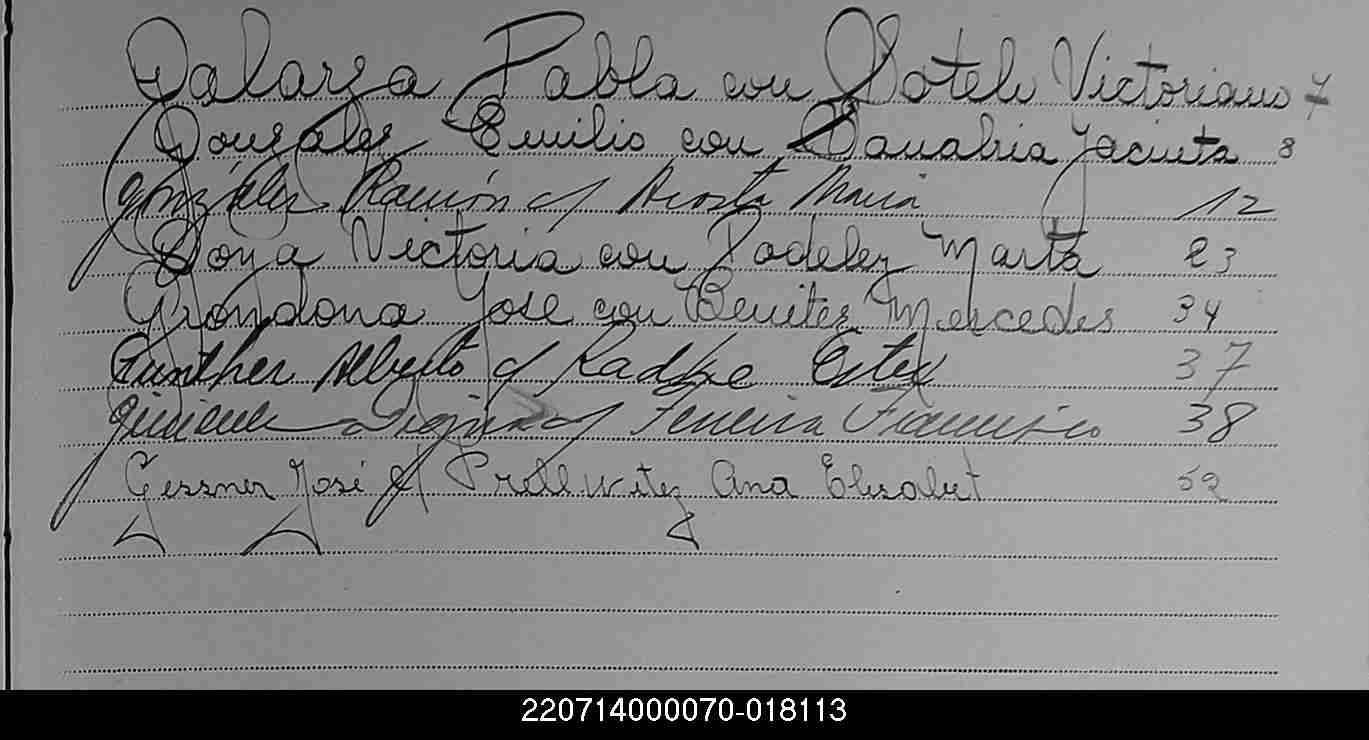 Galarza Pabla con Sotelo Victoriano 7
Gonzales Emilio con Sanabria Jacinta 8
González Ramón c/ Acosta Maria 12
Goya Victoria con Podeley Marta 23
Grondona José con Benitez Mercedes 34
Günther Alberto c/ Ester 37
Gimenez c/ Ferreira Francisco 38
Gessner José c/ Prellwitz Ana Elisabet 52
220714000070-018113